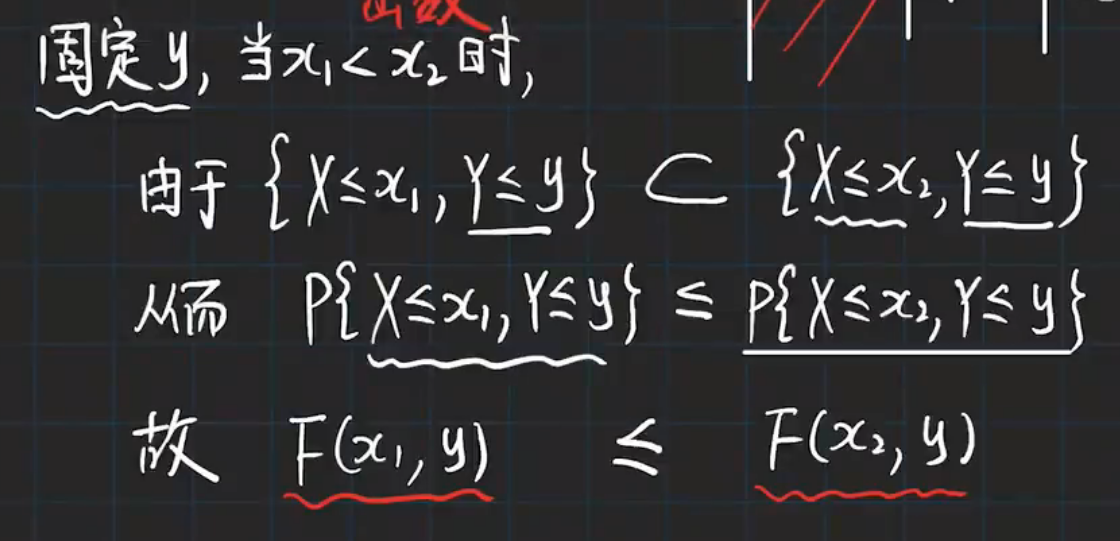 函数
固定y, 当x₁<x₂时,
由于 {X≤x₁, Y≤y} ⊂ {X≤x₂, Y≤y}
从而 P{X≤x₁, Y≤y} ≤ P{X≤x₂, Y≤y}
故 F(x₁, y) ≤ F(x₂, y)